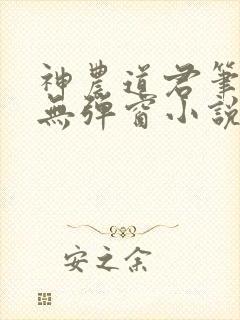 神農道君筆
無彈窗小說
安之余